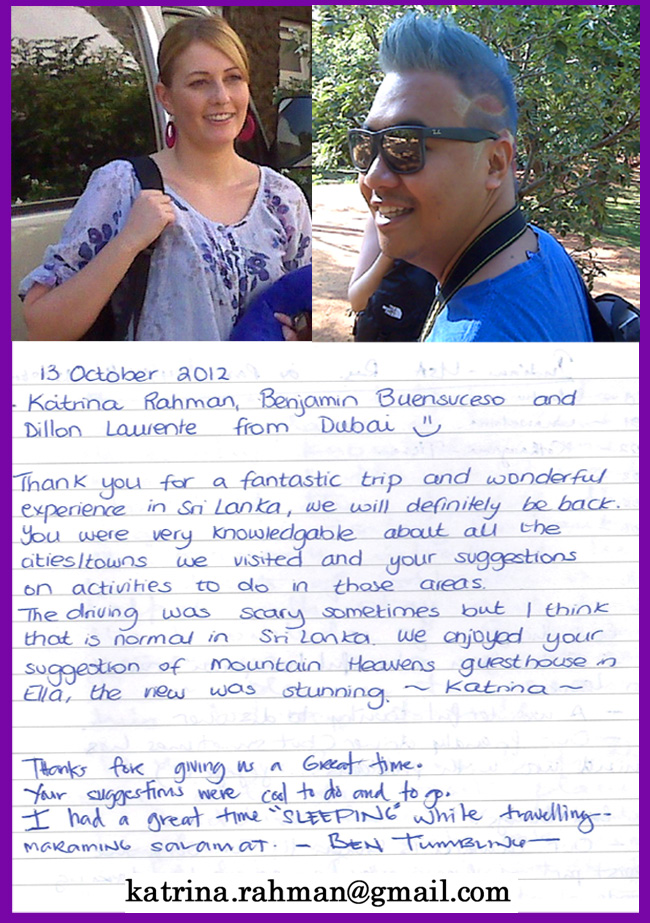 13 October 2012
- Katrina Rahman, Benjamin Buensuceso and
Dillon Laurente from Dubai
Thank you for a fantastic trip and wonderful
experience in Sri Lanka, we will definitely be back.
You were very knowledgable about all the
cities/towns we visited and your suggestions
on activities to do in those areas.
The driving was scary sometimes but I think
that is normal in Sri Lanka. We enjoyed your
suggestion of Mountain Heavens guesthouse in
Ella, the view was stunning. ~ Katrina ~
Thanks for giving us a Great time.
Your suggestions were cool to do and to go.
I had a great time "SLEEPING" while travelling--
MARAMING SALAMAT. - BEN TUMBLING -
katrina.rahman@gmail.com